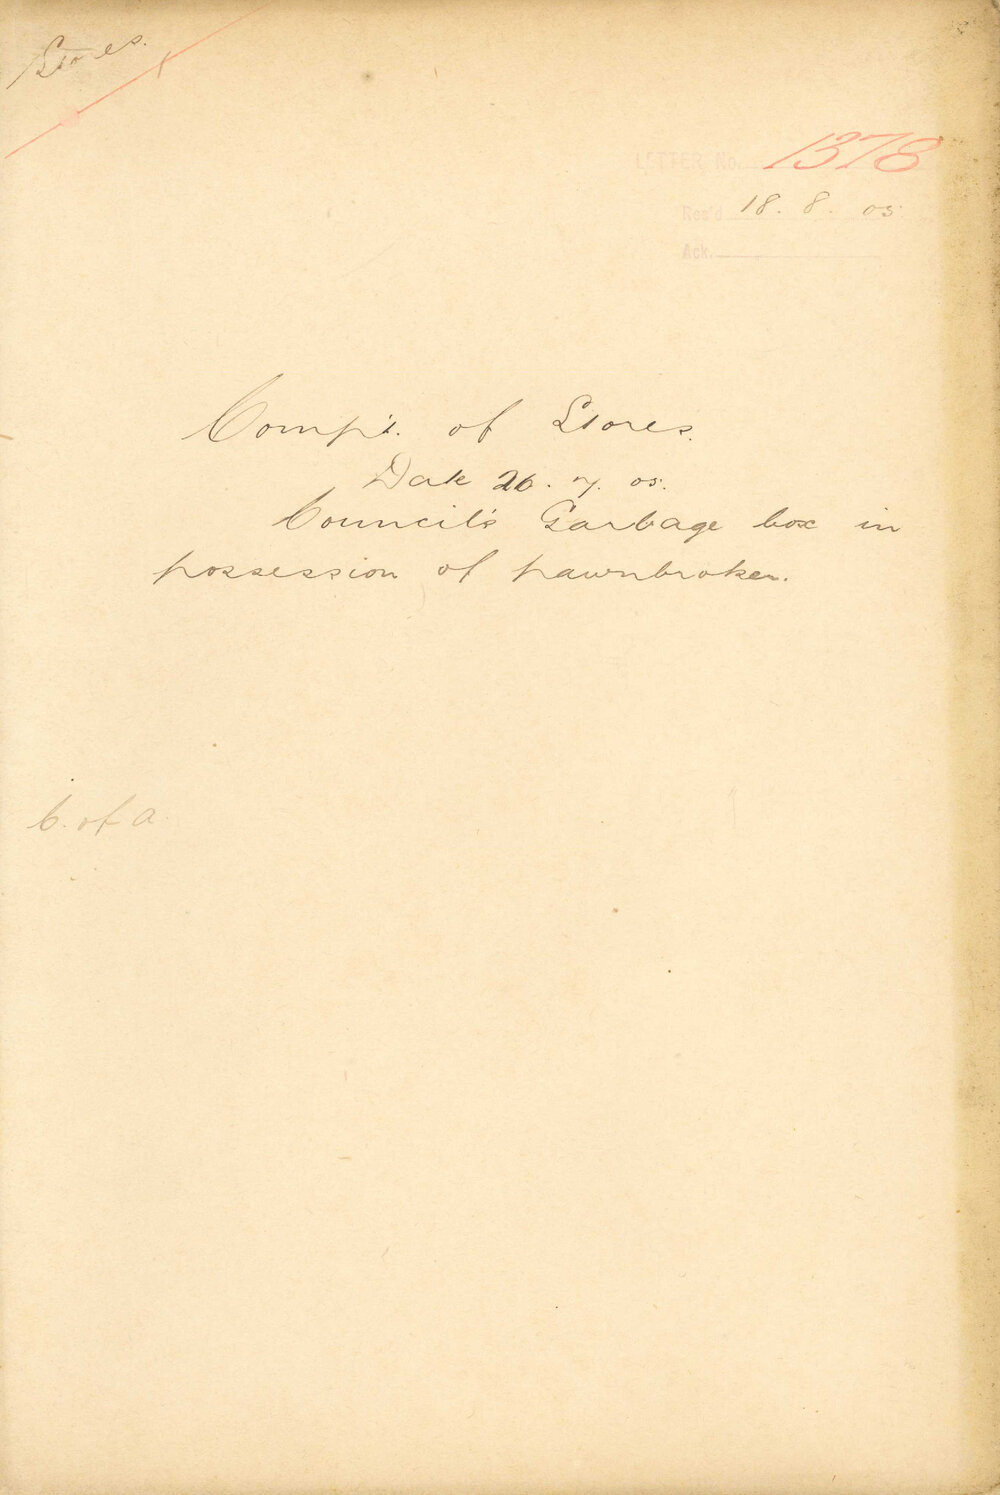 Stores.
LETTER No. 1378
Rec'd 18. 8. 05
Ack.
Compt. of Stores.
Date 26. 7. 05.
Council's Garbage box in
possession of pawnbroker.
C. of A